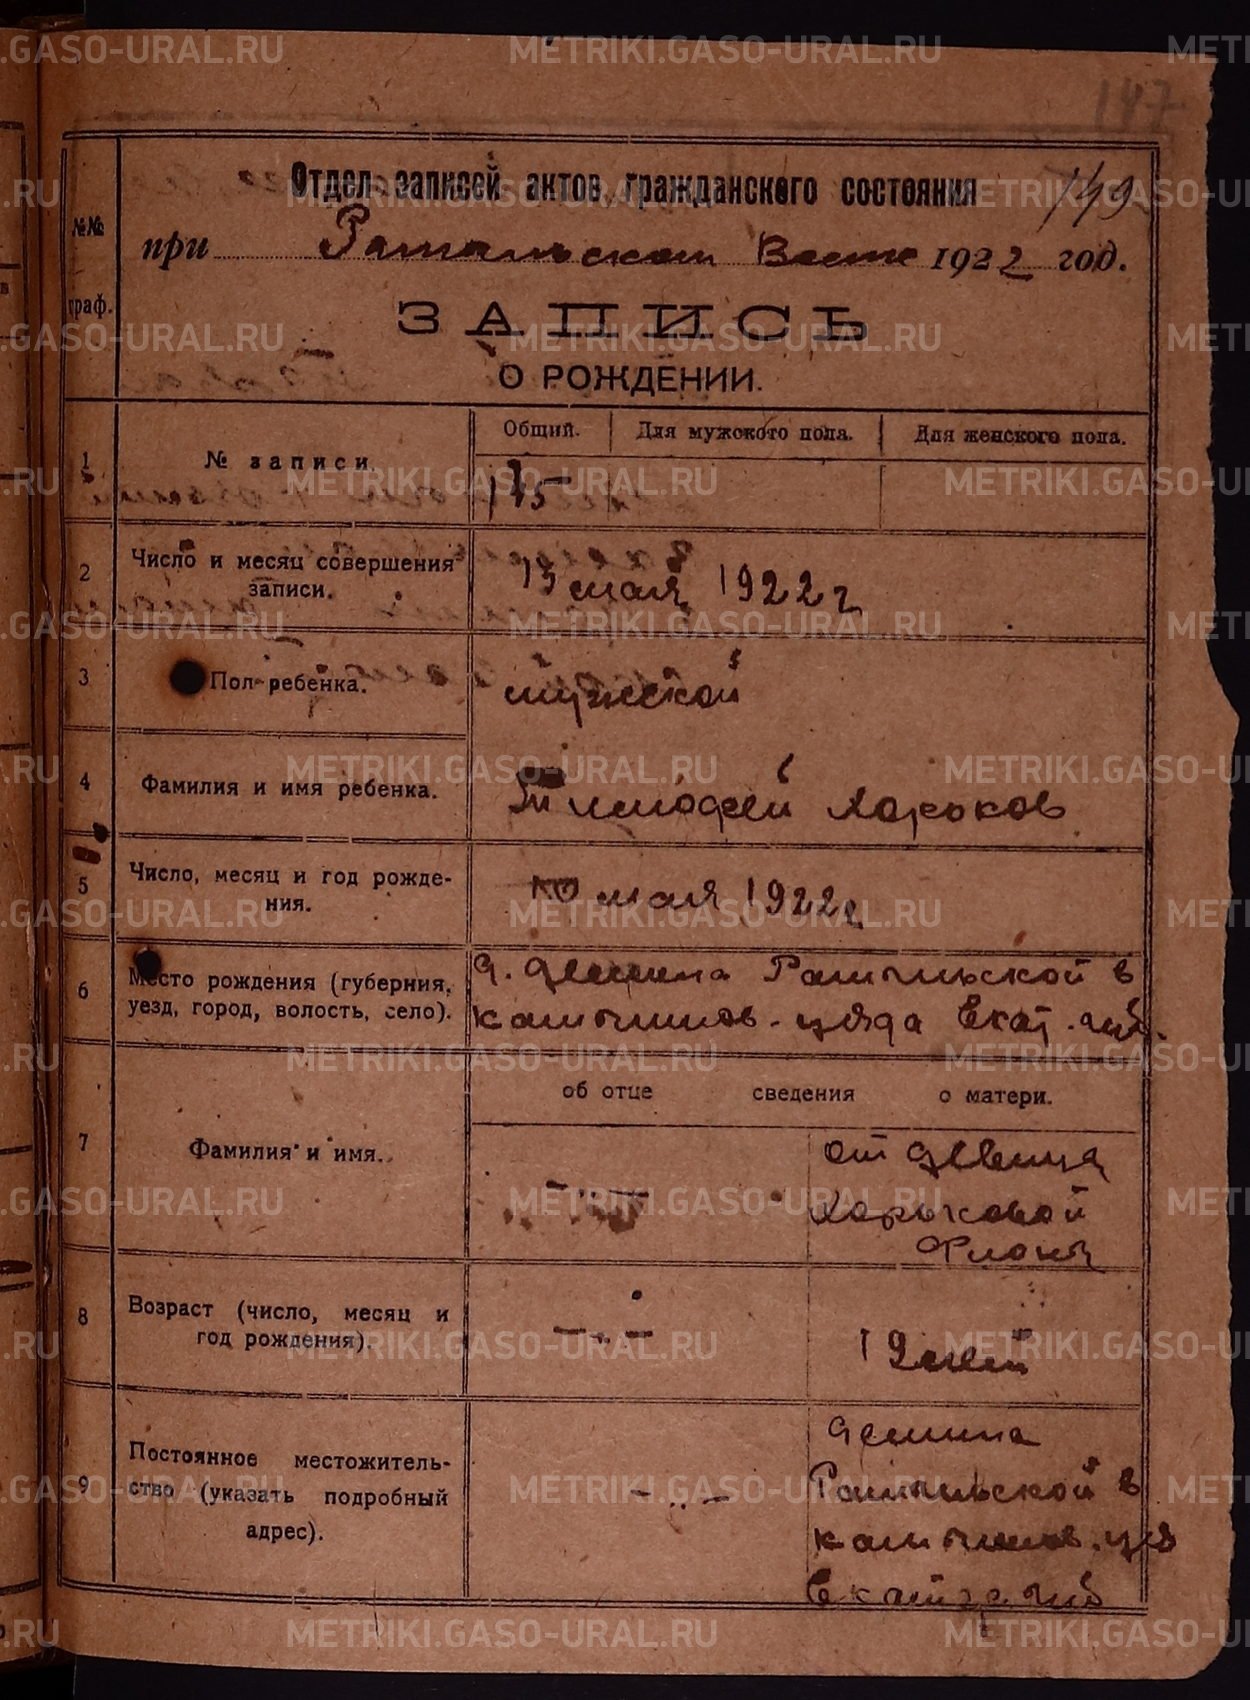 147
Отдел записей актов гражданского состояния
149
№№ граф.
при Волис 1922 год.
ЗАПИСЬ
О РОЖДЕНИИ.
1 № записи. Общий. Для мужского пола. Для женского пола.
175
2 Число и месяц совершения записи.
13 мая 1922 г
3 Пол ребенка.
мужской
4 Фамилия и имя ребенка.
Тимофей Хорьков
5 Число, месяц и год рождения.
10 мая 1922 г
6 Место рождения (губерния, уезд, город, волость, село).
д. Демина в
Камышлов. уезда Екат. губ.
об отце сведения о матери.
7 Фамилия и имя.
от девицы
Хорьковой
8 Возраст (число, месяц и год рождения).
19 лет
9 Постоянное местожительство (указать подробный адрес).
Демина
в
Камышлов. у
губ
METRIKI.GASO-URAL.RU